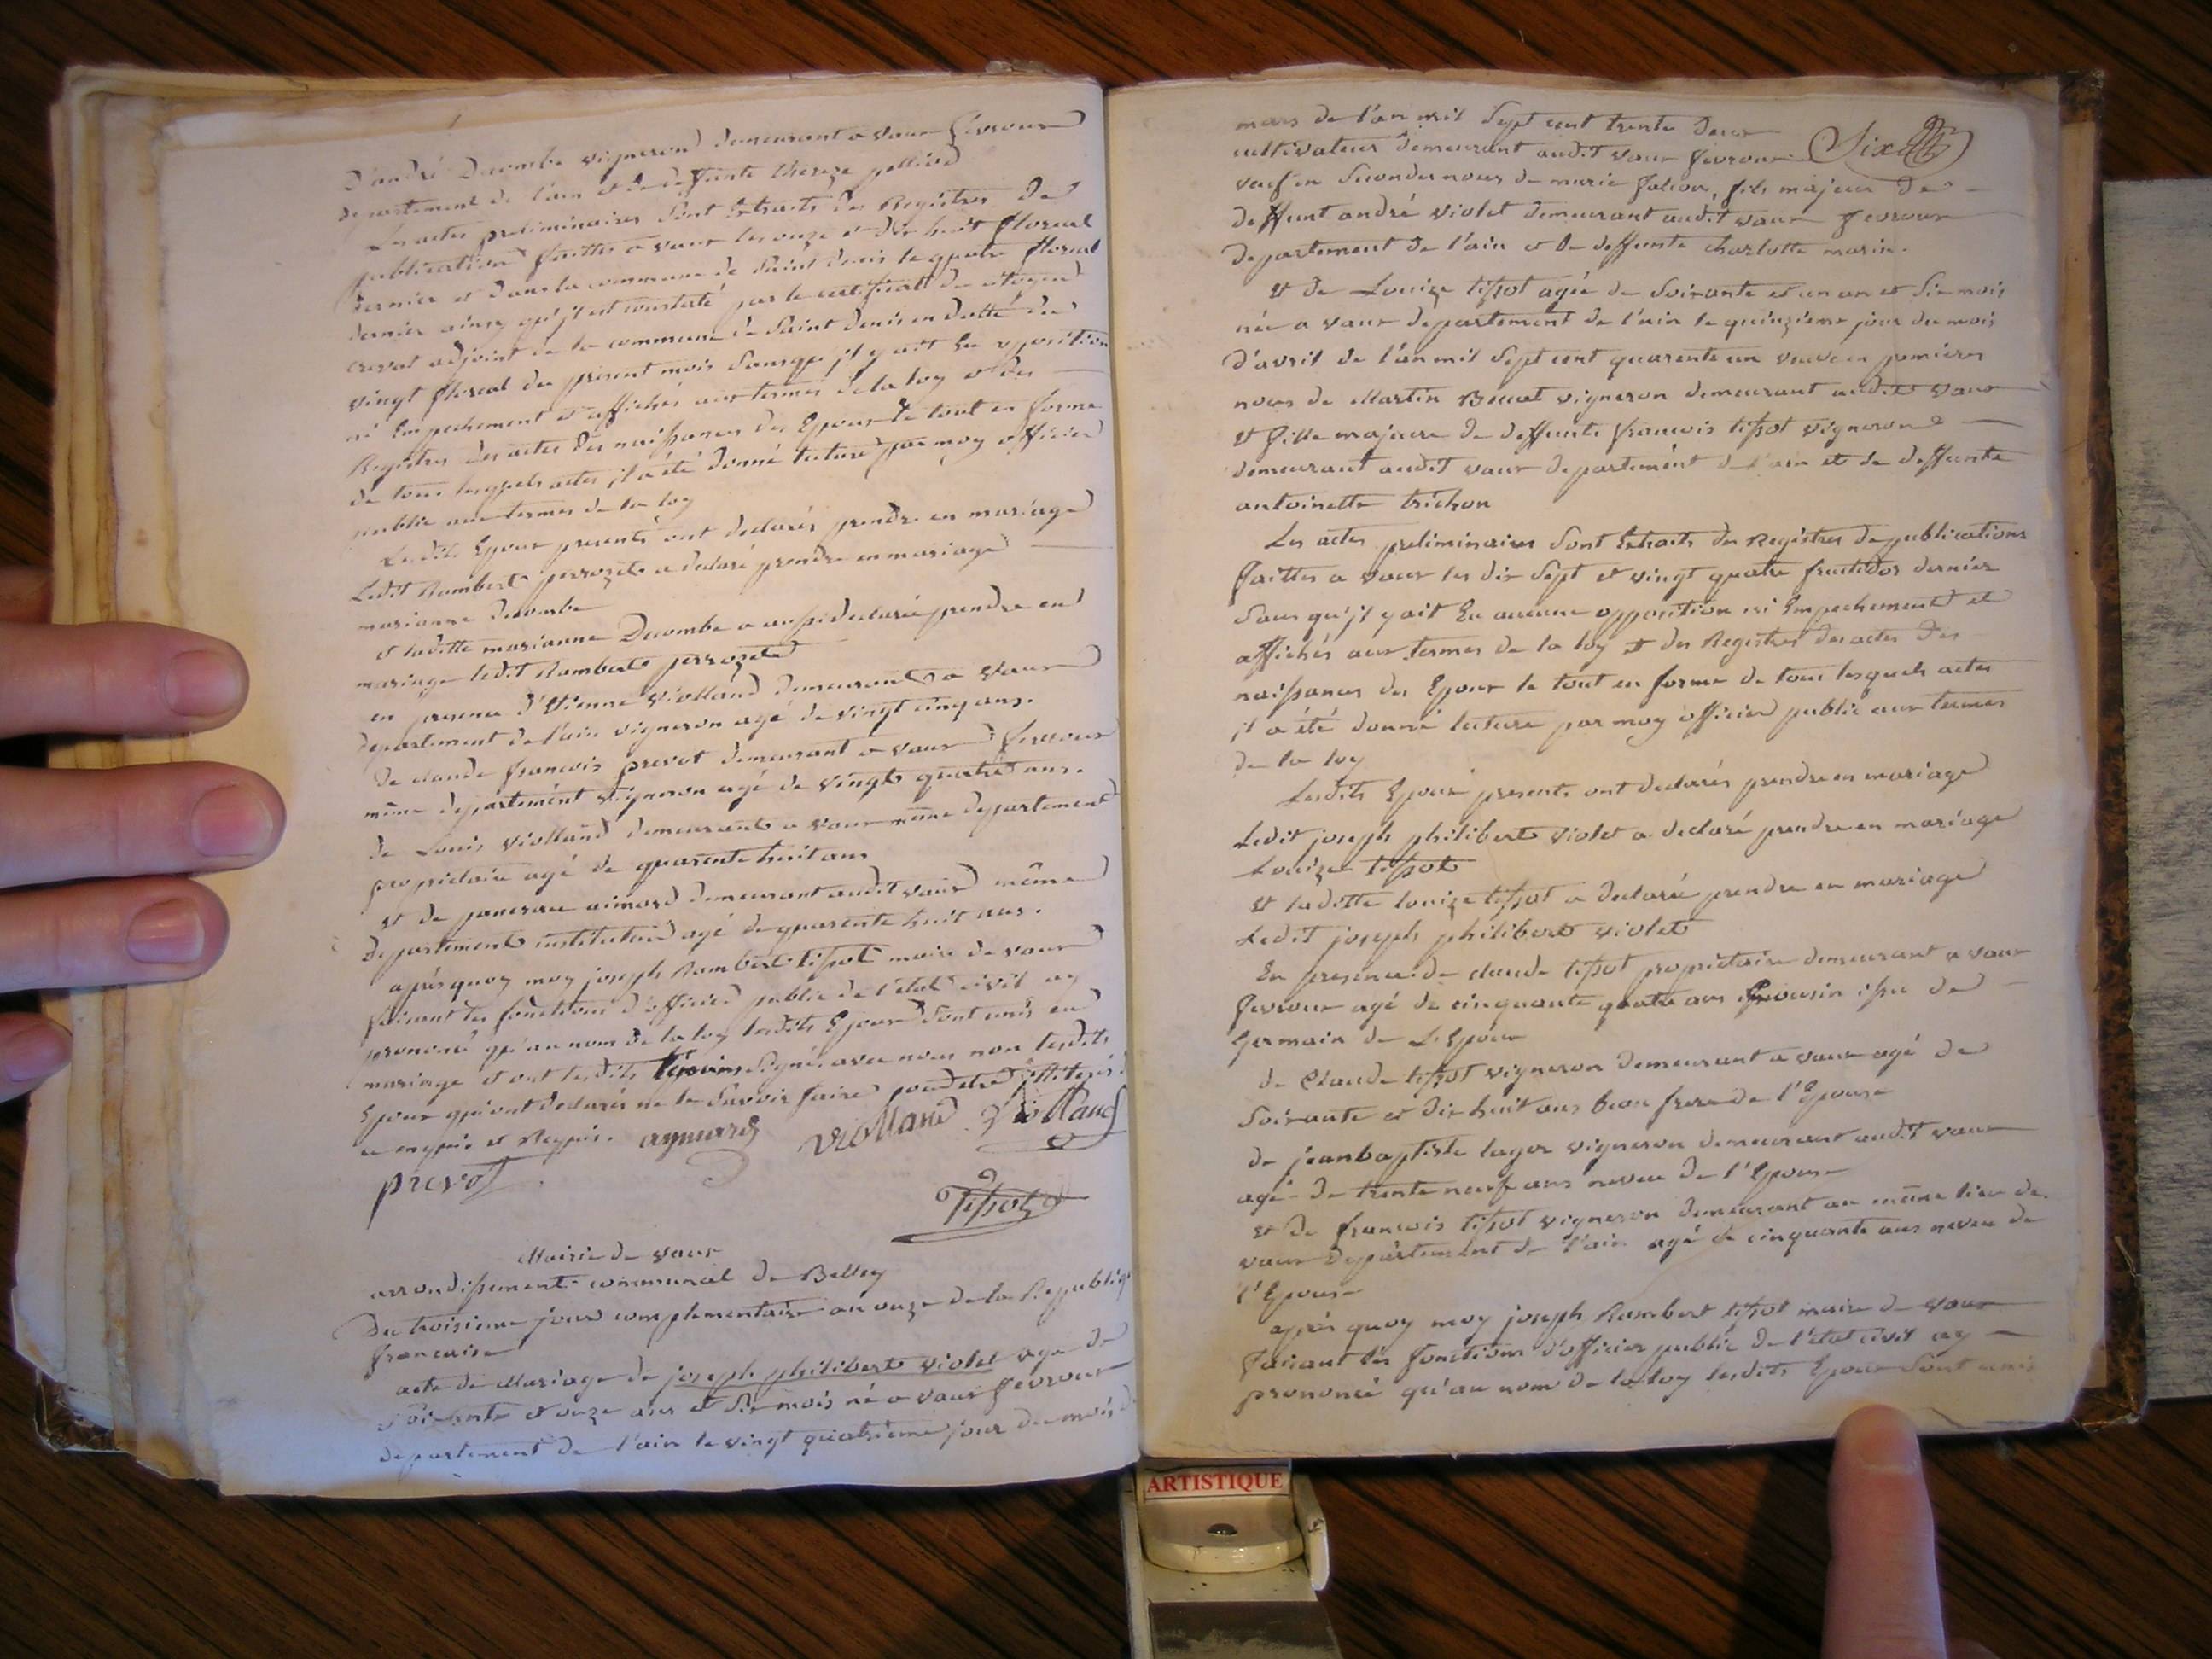 D'andré Ducombe vigneron demeurant a vaux fevroux
departement de l'ain et de deffunte therese
Les actes preliminaires sont Extraits des Registres de
publication faittes a vaux les onze et dix huit floreal
dernier et dans la commune de saint denis le quatre floreal
dernier ainsy qu'il est constaté par le certificat du citoyen
adjoint de la commune de saint denis en datte du
vingt floreal du present mois sans qu'il y ait Eu opposition
ni Empechement et affichés aux termes de la loy et des
Registres des actes des naissances des Epoux le tout en forme
de tous lesquels actes il a été donné lecture par moy officier
public aux termes de la loy
Lesdits Epoux presents ont declarés prendre en mariage
Ledit Rambert perrozet a declaré prendre en mariage
marianne ducombe
et laditte marianne Ducombe a aussi declarée prendre en
mariage ledit Rambert perrozet
en presence d'Etienne Violland demeurant a Vaux
departement de l'ain vigneron agé de vingt cinq ans.
De claude francois prevot demeurant a vaux fevroux
même departement vigneron agé de vingt quatre ans.
de Louis violland demeurant a vaux même departement
proprietaire agé de quarente huit ans
et de pancrace aimard demeurant audit vaux même
departement instituteur agé de quarente huit ans.
après quoy moy joseph Rambert tissot maire de vaux
faisant les fonctions d'officier public de l'état civil ay
prononcé qu'au nom de la loy lesdits Epoux sont unis en
mariage et ont lesdits témoins signés avec nous non lesdits
Epoux qui ont declarés ne le savoir faire pour etre illiterés
ce enquis et Requis. aymard violland Violland
prevot
Tissot
Mairie de vaux
arrondissement communal de Belley
Du troisieme jour complementaire an onze de la Republique
francaise
acte de Mariage de joseph philibert violet agé de
soixante et onze ans et six mois né a vaux fevroux
departement de l'ain le vingt quatrieme jour du mois de
mars de l'an mil sept cent trente deux Six
cultivateur demeurant audit vaux fevroux
veuf en secondes noces de marie falcon, fils majeur de
deffunt andré violet demeurant audit vaux fevroux
departement de l'ain et de deffunte charlotte marin.
et de Louize tissot agée de soixante et un an et six mois
née a vaux departement de l'ain le quinzieme jour du mois
d'avril de l'an mil sept cent quarente un veuve en premieres
noces de Martin vigneron demeurant audit vaux
et fille majeure de deffunts francois tissot vigneron
demeurant audit vaux departement de l'ain et de deffunte
antoinette trichon
Les actes preliminaires sont Extraits des Registres de publications
faittes a vaux les dix sept et vingt quatre fructidor dernier
sans qu'il y ait Eu aucune opposition ni Empechement et
affichés aux termes de la loy et des Registres des actes des
naissances des Epoux le tout en forme de tous lesquels actes
il a été donné lecture par moy officier public aux termes
de la loy
Lesdits Epoux presents ont declarés prendre en mariage
Ledit joseph philibert violet a declaré prendre en mariage
Louize tissot
et laditte louize tissot a declarée prendre en mariage
Ledit joseph philibert violet
En presence de claude tissot propriétaire demeurant a vaux
fevroux agé de cinquante quatre ans cousin issu de
Germain de L'Epoux
de Claude tissot vigneron demeurant a vaux agé de
soixante et dix huit ans beau frere de l'Epouse
de jean baptiste lager vigneron demeurant audit vaux
agé de trente neuf ans neveu de l'Epouse
et de francois tissot vigneron demeurant au même lieu de
vaux Departement de l'ain agé de cinquante ans neveu de
l'Epouse
après quoy moy joseph Rambert tissot maire de vaux
faisant les fonctions d'officier public de l'état civil ay
prononcé qu'au nom de la loy lesdits Epoux sont unis
ARTISTIQUE